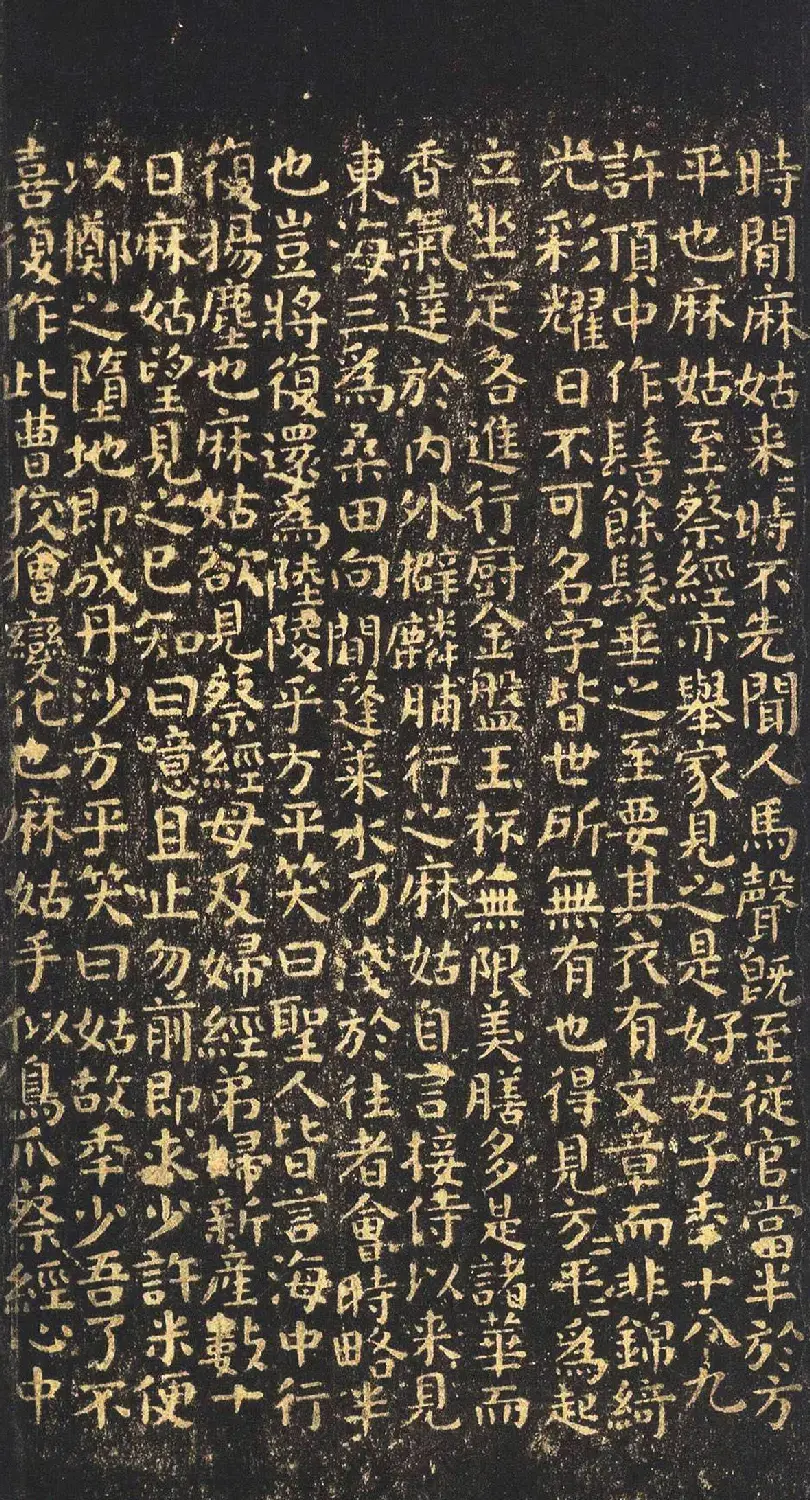 時間麻姑来〻時不先聞人馬聲既至從官當半於方
平也麻姑至蔡經亦舉家見之是好女子秊十八九
許頂中作髻餘髮垂之至要其衣有文章而非錦綺
光彩耀日不可名字皆世所無有也得見方〻平〻爲起
立坐定各進行廚金盤玉杯無限美膳多是諸華而
香氣達於內外擗麟脯行之麻姑自言接侍以来見
東海三爲桑田向間蓬莱水乃淺於往者會時略半
也豈將復還爲陸陵乎方平笑曰聖人皆言海中行
復揚塵也麻姑欲見蔡經母及婦經弟婦新産數十
日麻姑望見之已知曰噫且止勿前即求少許米便
以擲之墮地即成丹沙方乎笑曰姑故秊少吾了不
喜復作此曹狡獪變化也麻姑手似鳥爪蔡經心中